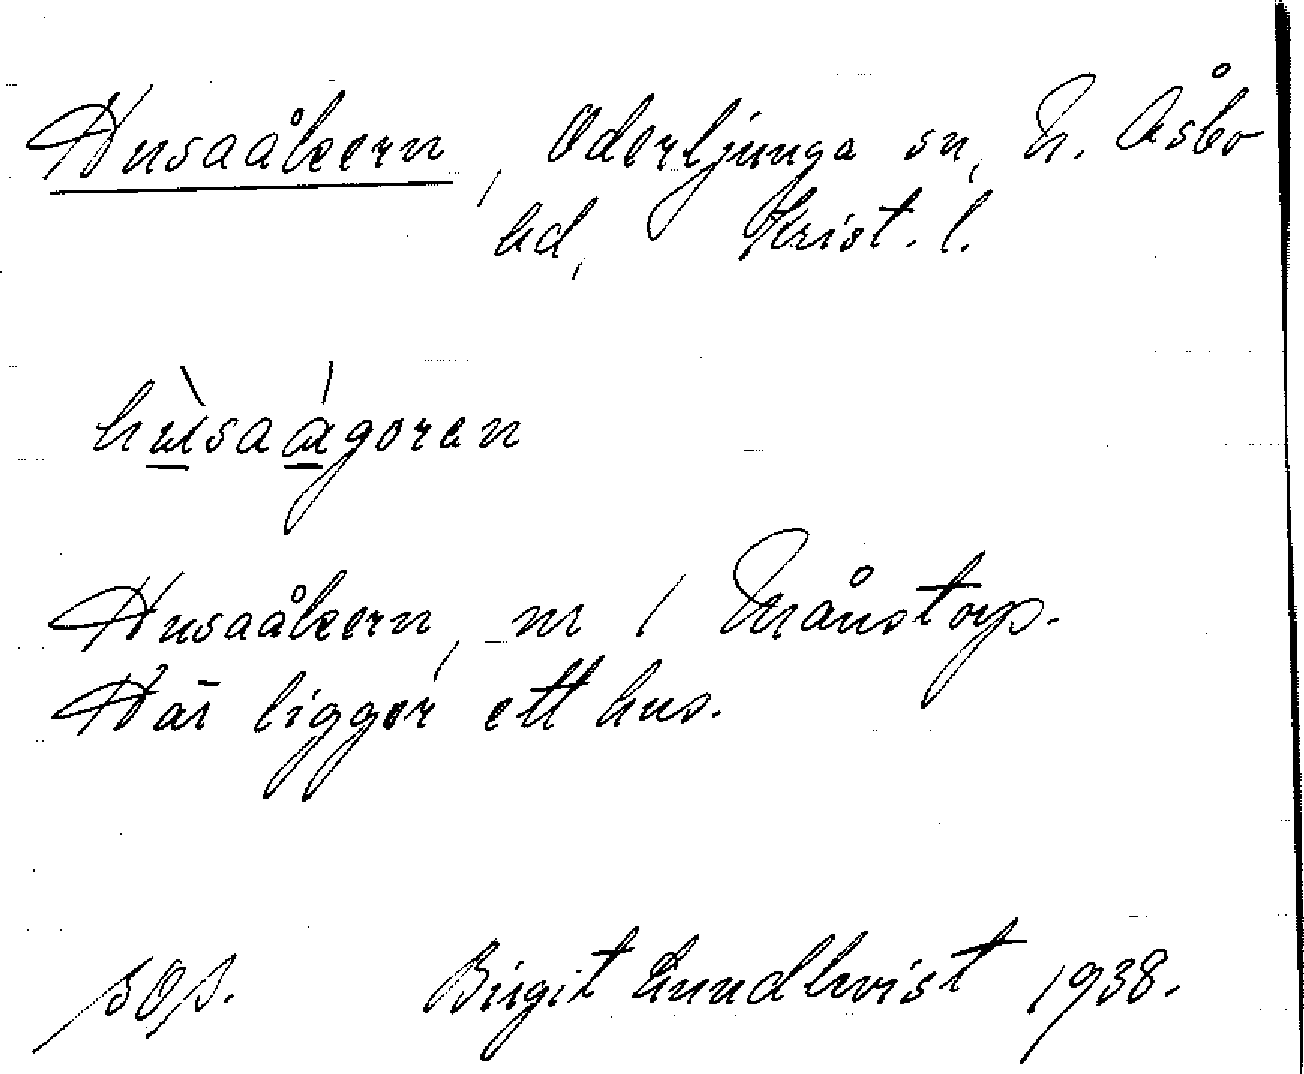 Husaåkern, Oderljunga sn, N. Åsbo
hd, Krist. l.
hùsaágoren
Husaåkern, nr 1 Månstorp.
Här ligger ett hus.
Birgit Lundkvist 1938.